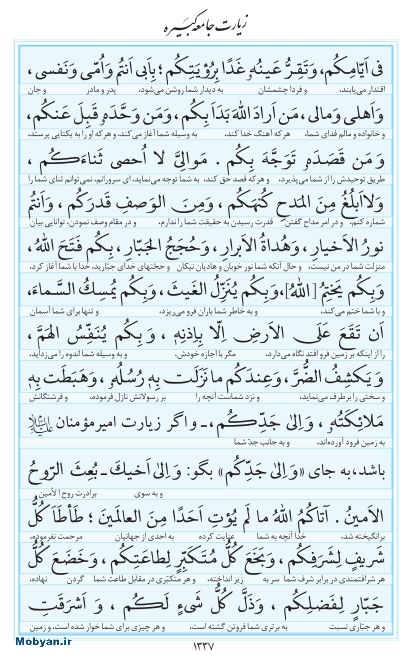 زیارت جامعه کبیره
فی اَیّامِکُم، وَتَقِرُّ عَینُهُ غَدًا بِرُؤیَتِکُم؛ بِاَبی اَنتُم وَاُمّی وَنَفسی،
اقتدار می‌یابند، و فردا چشمشان به دیدار شما روشن می‌شود، پدر و مادر و جان
وَاَهلی وَمالی، مَن اَرادَ اللهَ بَدَاَ بِکُم، وَمَن وَحَّدَهُ قَبِلَ عَنکُم،
و خانواده و مالم فدای شما، هر که آهنگ خدا کند، به وسیله شما آغاز می‌کند، و هر که او را به یکتایی پرستد،
وَ مَن قَصَدَهُ تَوَجَّهَ بِکُم . مَوالِیَّ لا اُحصی ثَناءَکُم ،
طریق توحیدش را از شما می‌پذیرد، و هر که قصد حق کند، به شما توجه می‌نماید، ای سرورانم، نمی‌توانم ثنای شما را
وَلااَبلُغُ مِنَ المَدحِ کُنهَکُم، وَمِنَ الوَصفِ قَدرَکُم، وَاَنتُم
شماره کنم، و در امر مداح گفتن قدرت رسیدن به حقیقت شما را ندارم، و در مقام وصف نمودن، توانایی بیان
نورُ الاَخیارِ، وَهُداةُ الاَبرارِ، وَحُجَجُ الجَبّارِ، بِکُم فَتَحَ اللهُ،
منزلت شما در من نیست، و حال آنکه شما نور خوبان و هادیان نیکان و حجتهای خدای جبّارید، خدا با شما آغاز کرد،
وَبِکُم یَختِمُ [اللهُ]، وَبِکُم یُنَزِّلُ الغَیثَ، وَبِکُم یُمسِكُ السَّماءَ،
و با شما ختم می‌کند، و به خاطر شما باران فرو می‌ریزد، و تنها برای شما آسمان
اَن تَقَعَ عَلَی الاَرضِ اِلّا بِاِذنِهِ، وَ بِکُم یُنَفِّسُ الهَمَّ،
را از اینکه بر زمین فرو افتد نگاه می‌دارد، مگر با اجازه خودش، و به وسیله شما اندوه را می‌زداید،
وَ یَکشِفُ الضُّرَّ، وَعِندَکُم ما نَزَلَت بِهِ رُسُلُهُ، وَهَبَطَت بِهِ
و سختی را برطرف می‌نماید، و نزد شماست آنچه را بر رسولانش نازل فرموده، و فرشتگانش
مَلائِکَتُهُ، وَ اِلی جَدِّکُم،.. و اگر زیارت امیرمؤمنان علیه السلام
به زمین فرود آورده‌اند، و به جانب جدّ شما
باشد، به جای «وَ اِلی جَدِّکُم» بگو: وَ اِلی اَخیكَ.. بُعِثَ الرّوحُ
و به سوی برادرت روح الأمین
الاَمینُ . آتاکُمُ اللهُ ما لَم یُؤتِ اَحَدًا مِنَ العالَمینَ ؛ طَأطَاَ کُلُّ
برانگیخته شد، خدا آنچه به شما عنایت کرده به احدی از جهانیان مرحمت نفرموده،
شَریفٍ لِشَرَفِکُم، وَبَخَعَ کُلُّ مُتَکَبِّرٍ لِطاعَتِکُم ، وَ خَضَعَ کُلُّ
هر شرافتمندی در برابر شرف شما سر به زیر انداخته، و هر متکبّری در مقابل طاعت شما گردن نهاده،
جَبّارٍ لِفَضلِکُم ، وَ ذَلَّ کُلُّ شَیءٍ لَکُم ، وَ اَشرَقَتِ
و هر جبّاری نسبت به برتری شما فروتن گشته است، و هر چیزی برای شما خوار شده است، و زمین
۱۳۳۷
Mobyan.ir